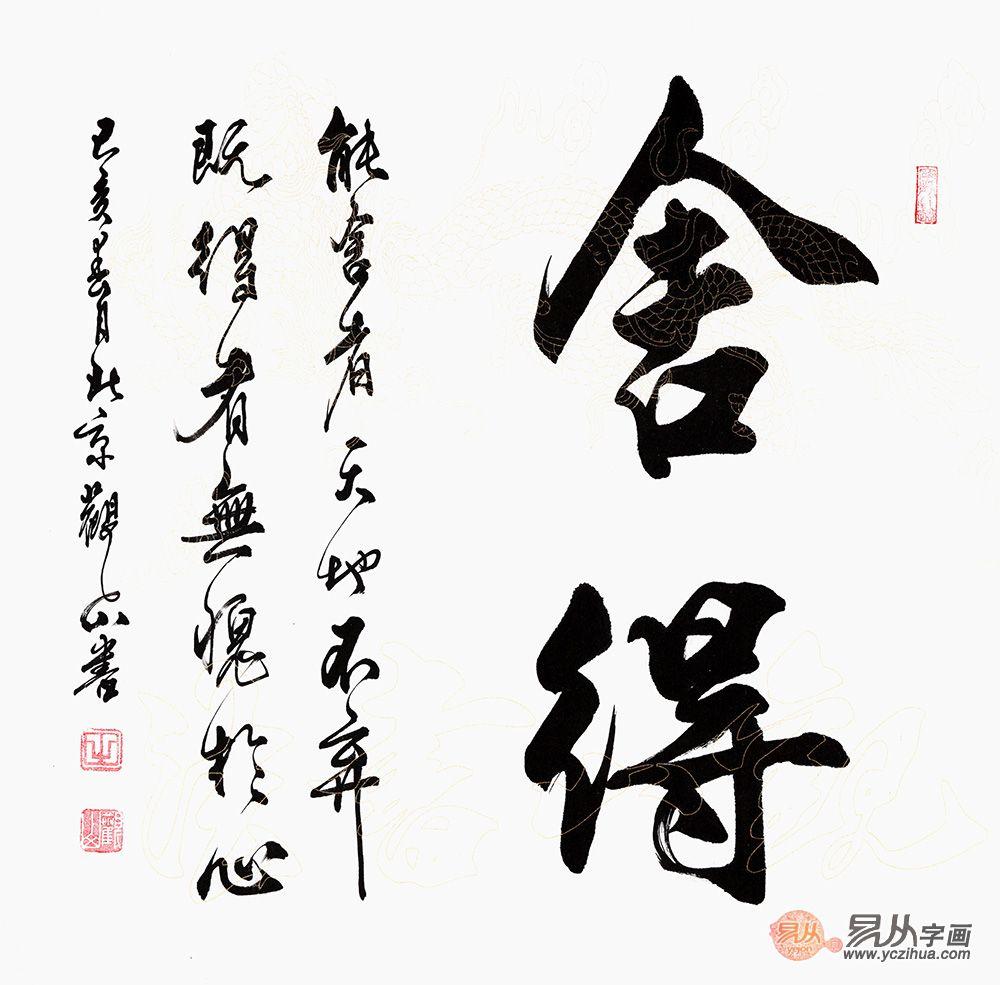 舍得
能舍者天地不弃
既得者無愧於心
己亥春月北京觀山書
易从
易从字画
www.yczihua.com